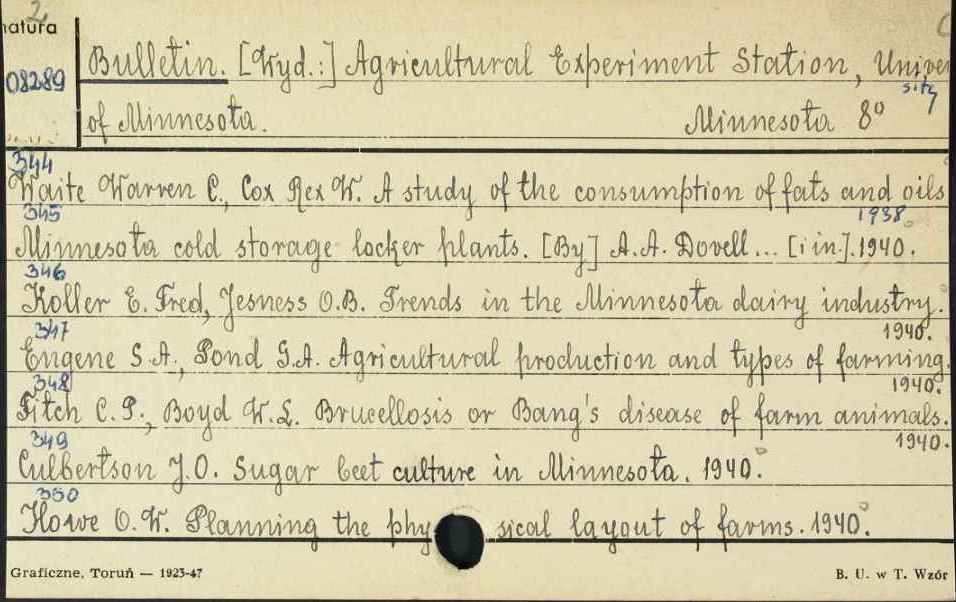 2
natura
08289
Bulletin. [Wyd.:] Agricultural Experiment Station, Univer
sity
of Minnesota. Minnesota 8°
344
Waite Warren C., Cox Rex W. A study of the consumption of fats and oils
345 1938.
Minnesota cold storage locker plants. [By] A.A. Dovell... [i in]. 1940.
346
Koller E. Fred, Jesness O.B. Trends in the Minnesota dairy industry.
347 1940.
Engene S.A., Pond G.A. Agricultural production and types of farming.
348 1940.
Fitch C.P., Boyd W.L. Brucellosis or Bang's disease of farm animals.
349 1940.
Culbertson J.O. Sugar beet culture in Minnesota. 1940.
350
Howe O.W. Planning the physical layout of farms. 1940.
Graficzne, Toruń — 1923-47 B. U. w T. Wzór